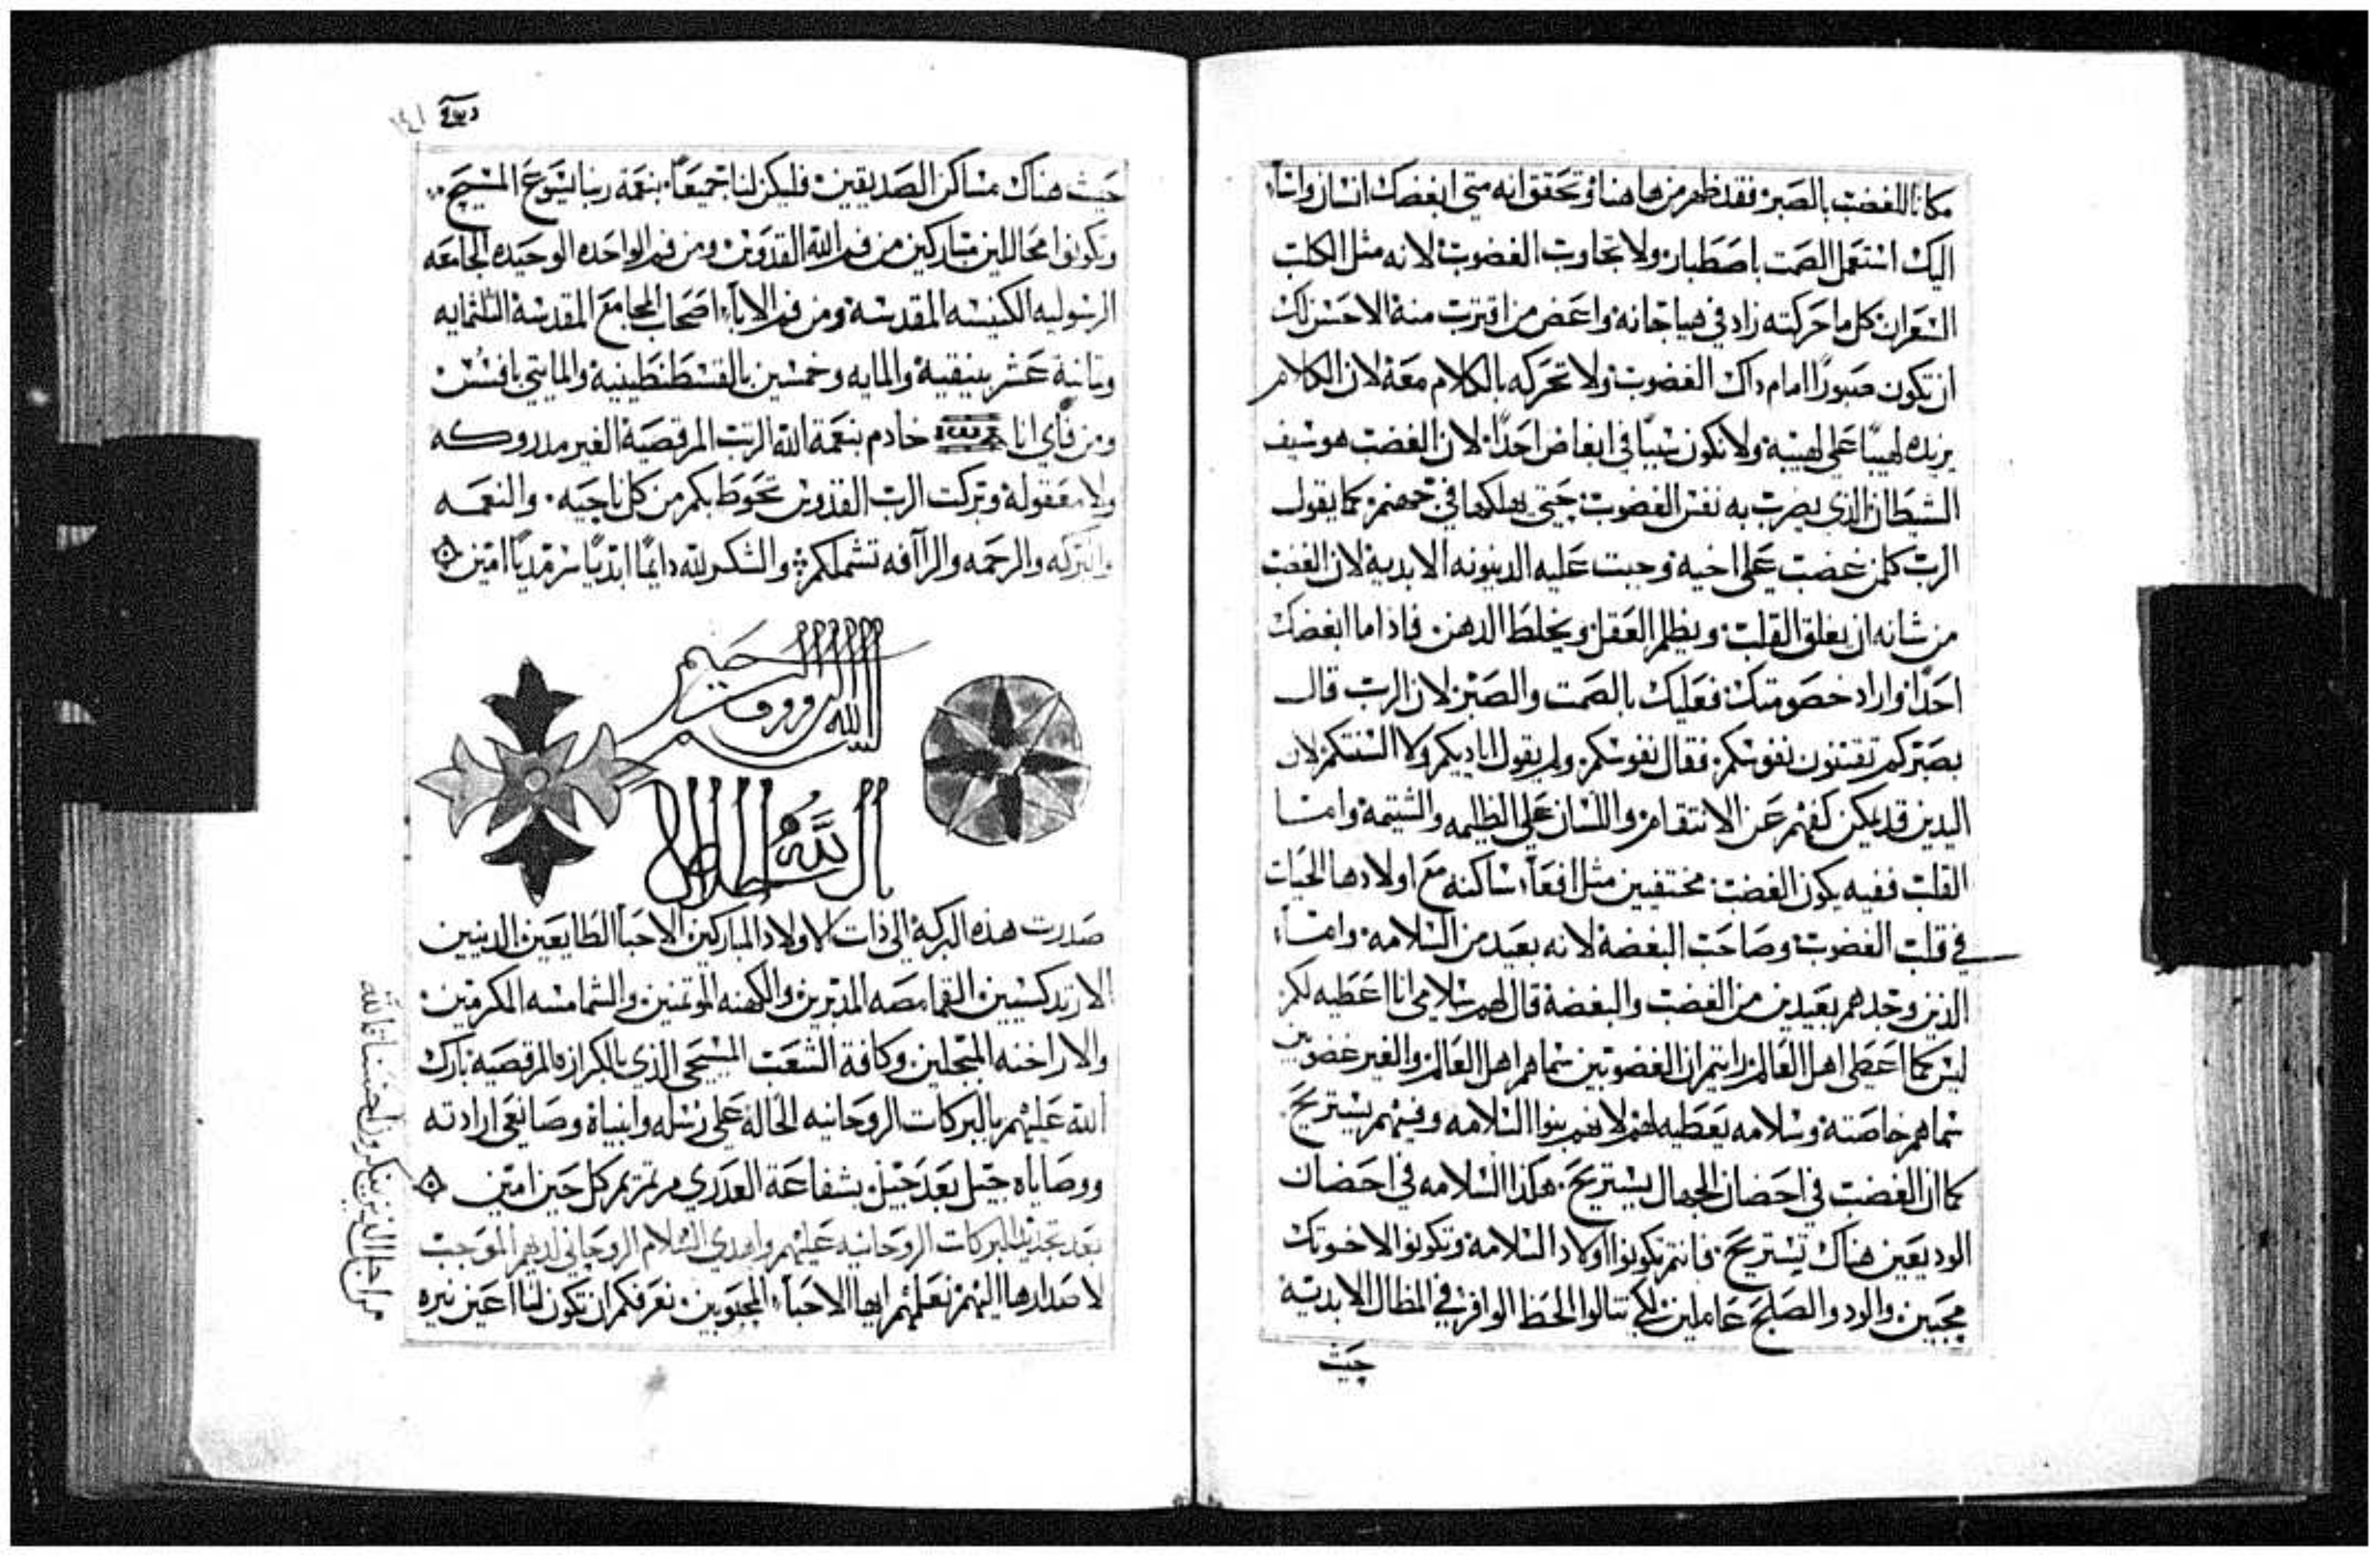 مكانا للغضب بالصبر فقد ظهر من هاهنا وتحقق انه متي ابغضك انسان واسآء
اليك استعمل الصمت باصطبار ولا تجاوب الغضوب لانه مثل الكلب
السعران كل ما حركته زاد في هياجانه واعض من اقترب منه الاحسن لك
ان تكون صبورًا امام داك الغضوب ولا تحركه بالكلام معه لان الكلام
يزيده لهيبًا علي لهيبه ولا تكون سببًا في ابغاض احدًا لان الغضب هو سيف
الشيطان الذي يضرب به نفس الغضوب حتي يهلكها في جهنم كما يقول
الرب كلمن غضب علي اخيه وجبت عليه الدينونه الابدية لان الغضب
من شانه ان يغلق القلب ويظلم العقل ويخلط الدهن فاذا ما ابغضك
احدًا واراد خصومتك فعليك بالصمت والصبر لان الرب قال
بصبركم تقتنون نفوسكم فقال نفوسكم ولم يقول اياديكم ولا السنتكم لان
اليدين قد يمكن كفهم عن الانتقام واللسان علي الظليمه والشتيمة وامـا
القلب ففيه يكون الغضب مختفيين مثل افعاء ساكنه مع اولادها الحيات
في قلب الغضوب وصاحب البغضة لانه بعيد من السلامه وامـا
الذين وجدهم بعيدين من الغضب والبغضة قال لهم سلامي انا اعطيه لكم
ليس كما اعطي اهل العالم رايتم ان الغضوبين سماهم اهل العالم والغير غضوبين
سماهم خاصته وسلامه يعطيه لهم لانهم بنوا السلامه وفيهم يستريح
كما ان الغضب في احضان الجهال يستريح هكذا السلامه في احضان
الوديعين هناك تستريح فانتم تكونوا اولاد السلامه وتكونوا لاخوتك
محبين والود والصلح عاملين لكي تنالوا الحظ الوافر في المظال الابديه
حيث
حيث هناك مساكن الصديقين فليكن لنا جميعًا بنعمة ربنا يسوع المسيح
وتكونوا محاللين مباركين من فم الله القدوس ومن فم الواحده الوحيده الجامعه
الرسوليه الكنيسه المقدسة ومن فم الاباء اصحاب المجامع المقدسة الثلثمايه
وتمانية عشر بنيقية والمايه وخمسين بالقسطنطينية والمايتي بافسس
ومن فاي انا خادم بنعمة الله الرتب المرقصية الغير مدروكه
ولا معقولة وبركت الرب القدوس تحوط بكم من كل ناحيه والنعمـه
والبركه والرحمه والرآافه تشملكم والشكر لله دايمًا ابديًا سرمديًا امين
بسم الله الروووف الرحيم
صدرت هذه البركة الي ذات الاولاد المباركين الاحبا الطايعين الدينين
الارتدكسيين القمامصه المدبرين والكهنه الموتمنين والشمامسه المكرمين
والاراخنه المبجلين وكافة الشعب المسيحي الذي بالكرازه المرقصية بارك
الله عليهم بالبركات الروحانيه الحالة علي رسله وانبياه وصانعي ارادته
ووصاياه جيل بعد جيل بشفاعة العدري مرتمريم كل حين امين
بعد تجديد البركات الروحانيه عليهم واهدي السلام الروحاني لديهم الموجب
لاصدارها اليهم نعلمهم ايها الاحباء المحبوبين نعرفكم ان تكون لنا اعين نيره
من اجل الذين ينكرون الحسنات لله